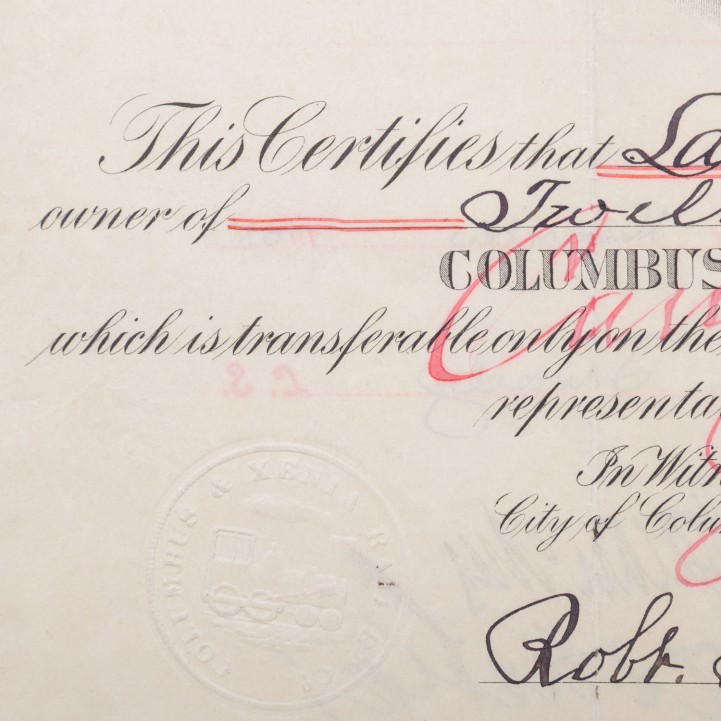 This Certifies that La
owner of Twel
COLUMBUS
which is transferable only on the
representa
In Witn
City of Colu
COLUMBUS & XENIA RAIL
Robt.
L. S.